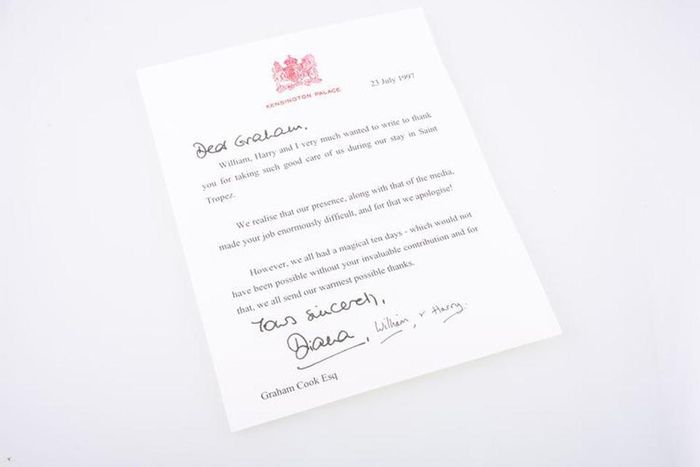 KENSINGTON PALACE
23 July 1997
Dear Graham,
William, Harry and I very much wanted to write to thank
you for taking such good care of us during our stay in Saint
Tropez.
We realise that our presence, along with that of the media,
made your job enormously difficult, and for that we apologise!
However, we all had a magical ten days - which would not
have been possible without your invaluable contribution and for
that, we all send our warmest possible thanks.
Yours sincerely,
Diana, William, + Harry.
Graham Cook Esq